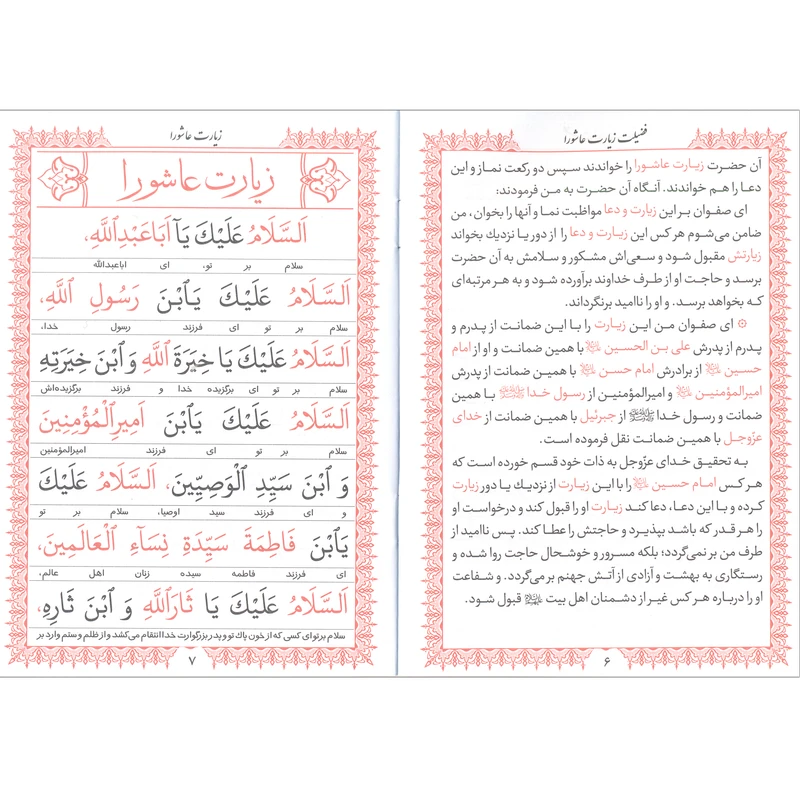 فضیلت زیارت عاشورا
آن حضرت زیارت عاشورا را خواندند سپس دو رکعت نماز و این
دعا را هم خواندند. آنگاه آن حضرت به من فرمودند:
ای صفوان بر این زیارت و دعا مواظبت نما و آنها را بخوان، من
ضامن می‌شوم هر کس این زیارت و دعا را از دور یا نزدیك بخواند
زیارتش مقبول شود و سعی‌اش مشکور و سلامش به آن حضرت
برسد و حاجت او از طرف خداوند برآورده شود و به هر مرتبه‌ای
که بخواهد برسد. و او را ناامید برنگرداند.
۞ ای صفوان من این زیارت را با این ضمانت از پدرم و
پدرم از پدرش علی بن الحسین علیه‌السلام با همین ضمانت و او از امام
حسین علیه‌السلام از برادرش امام حسن علیه‌السلام با همین ضمانت از پدرش
امیرالمؤمنین علیه‌السلام و امیرالمؤمنین از رسول خدا ﷺ با همین
ضمانت و رسول خدا ﷺ از جبرئیل با همین ضمانت از خدای
عزّوجل با همین ضمانت نقل فرموده است.
به تحقیق خدای عزّوجل به ذات خود قسم خورده است که
هر کس امام حسین علیه‌السلام را با این زیارت از نزدیك یا دور زیارت
کرده و با این دعا، دعا کند زیارت او را قبول کند و درخواست او
را هر قدر که باشد بپذیرد و حاجتش را عطا کند. پس ناامید از
طرف من بر نمی‌گردد؛ بلکه مسرور و خوشحال حاجت روا شده و
رستگاری به بهشت و آزادی از آتش جهنم بر می‌گردد. و شفاعت
او را درباره هر کس غیر از دشمنان اهل بیت علیهم‌السلام قبول شود.
۶
زیارت عاشورا
زیارت عاشورا
اَلسَّلَامُ عَلَیْكَ یَآ اَبَاعَبْدِٱللَّهِ،
سلام بر تو، ای اباعبدالله
اَلسَّلَامُ عَلَیْكَ یَٱبْنَ رَسُولِ ٱللَّهِ،
سلام بر تو ای فرزند رسول خدا،
اَلسَّلَامُ عَلَیْكَ یَا خِیَرَةَ ٱللَّهِ وَ ٱبْنَ خِیَرَتِهِ
سلام بر تو ای برگزیده خدا و فرزند برگزیده‌اش
اَلسَّلَامُ عَلَیْكَ یَٱبْنَ اَمِیرِٱلْمُؤْمِنِینَ
سلام بر تو ای فرزند امیرالمؤمنین
وَ ٱبْنَ سَیِّدِ ٱلْوَصِیِّینَ، اَلسَّلَامُ عَلَیْكَ
و ای فرزند سید اوصیا، سلام بر تو
یَٱبْنَ فَاطِمَةَ سَیِّدَةِ نِسَآءِ ٱلْعَالَمِینَ،
ای فرزند فاطمه سیده زنان اهل عالم،
اَلسَّلَامُ عَلَیْكَ یَا ثَارَٱللَّهِ وَ ٱبْنَ ثَارِهِ،
سلام بر تو ای کسی که از خون پاك تو و پدر بزرگوارت خدا انتقام می‌کشد و از ظلم و ستم وارد بر
۷